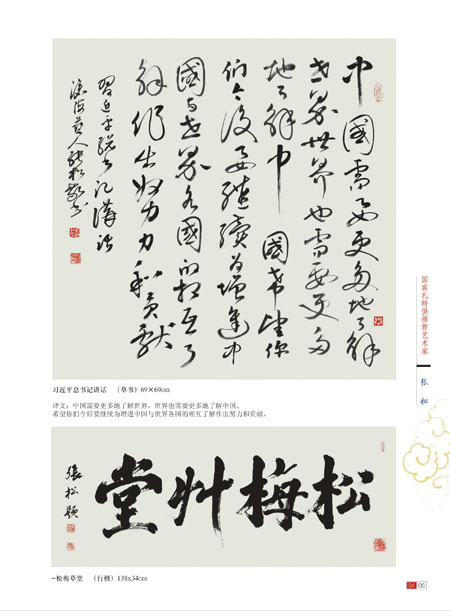 中國需要更多地了解
世界世界也需要更多
地了解中國希望你
们今後要继續为增進中
國与世界各國的相互了
解作出努力和貢献
習近平總书记講话
习近平总书记讲话 （草书）69×69cm
译文：中国需要更多地了解世界，世界也需要更多地了解中国。
希望你们今后要继续为增进中国与世界各国的相互了解作出努力和贡献。
国宾礼特供推荐艺术家
张 松
松梅艸堂
張松題
–松梅草堂 （行楷）138x34cm
04 05